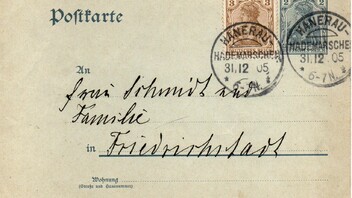 Postkarte
3
2
HANERAU-
HADEMARSCHEN
31.12 05
* 6-7N. *
HANERAU-
HADEMARSCHEN
31.12 05
* 6-7N. *
An
Frau Schmidt und
Familie
in Friedrichstadt
Wohnung
(Straße und Hausnummer)